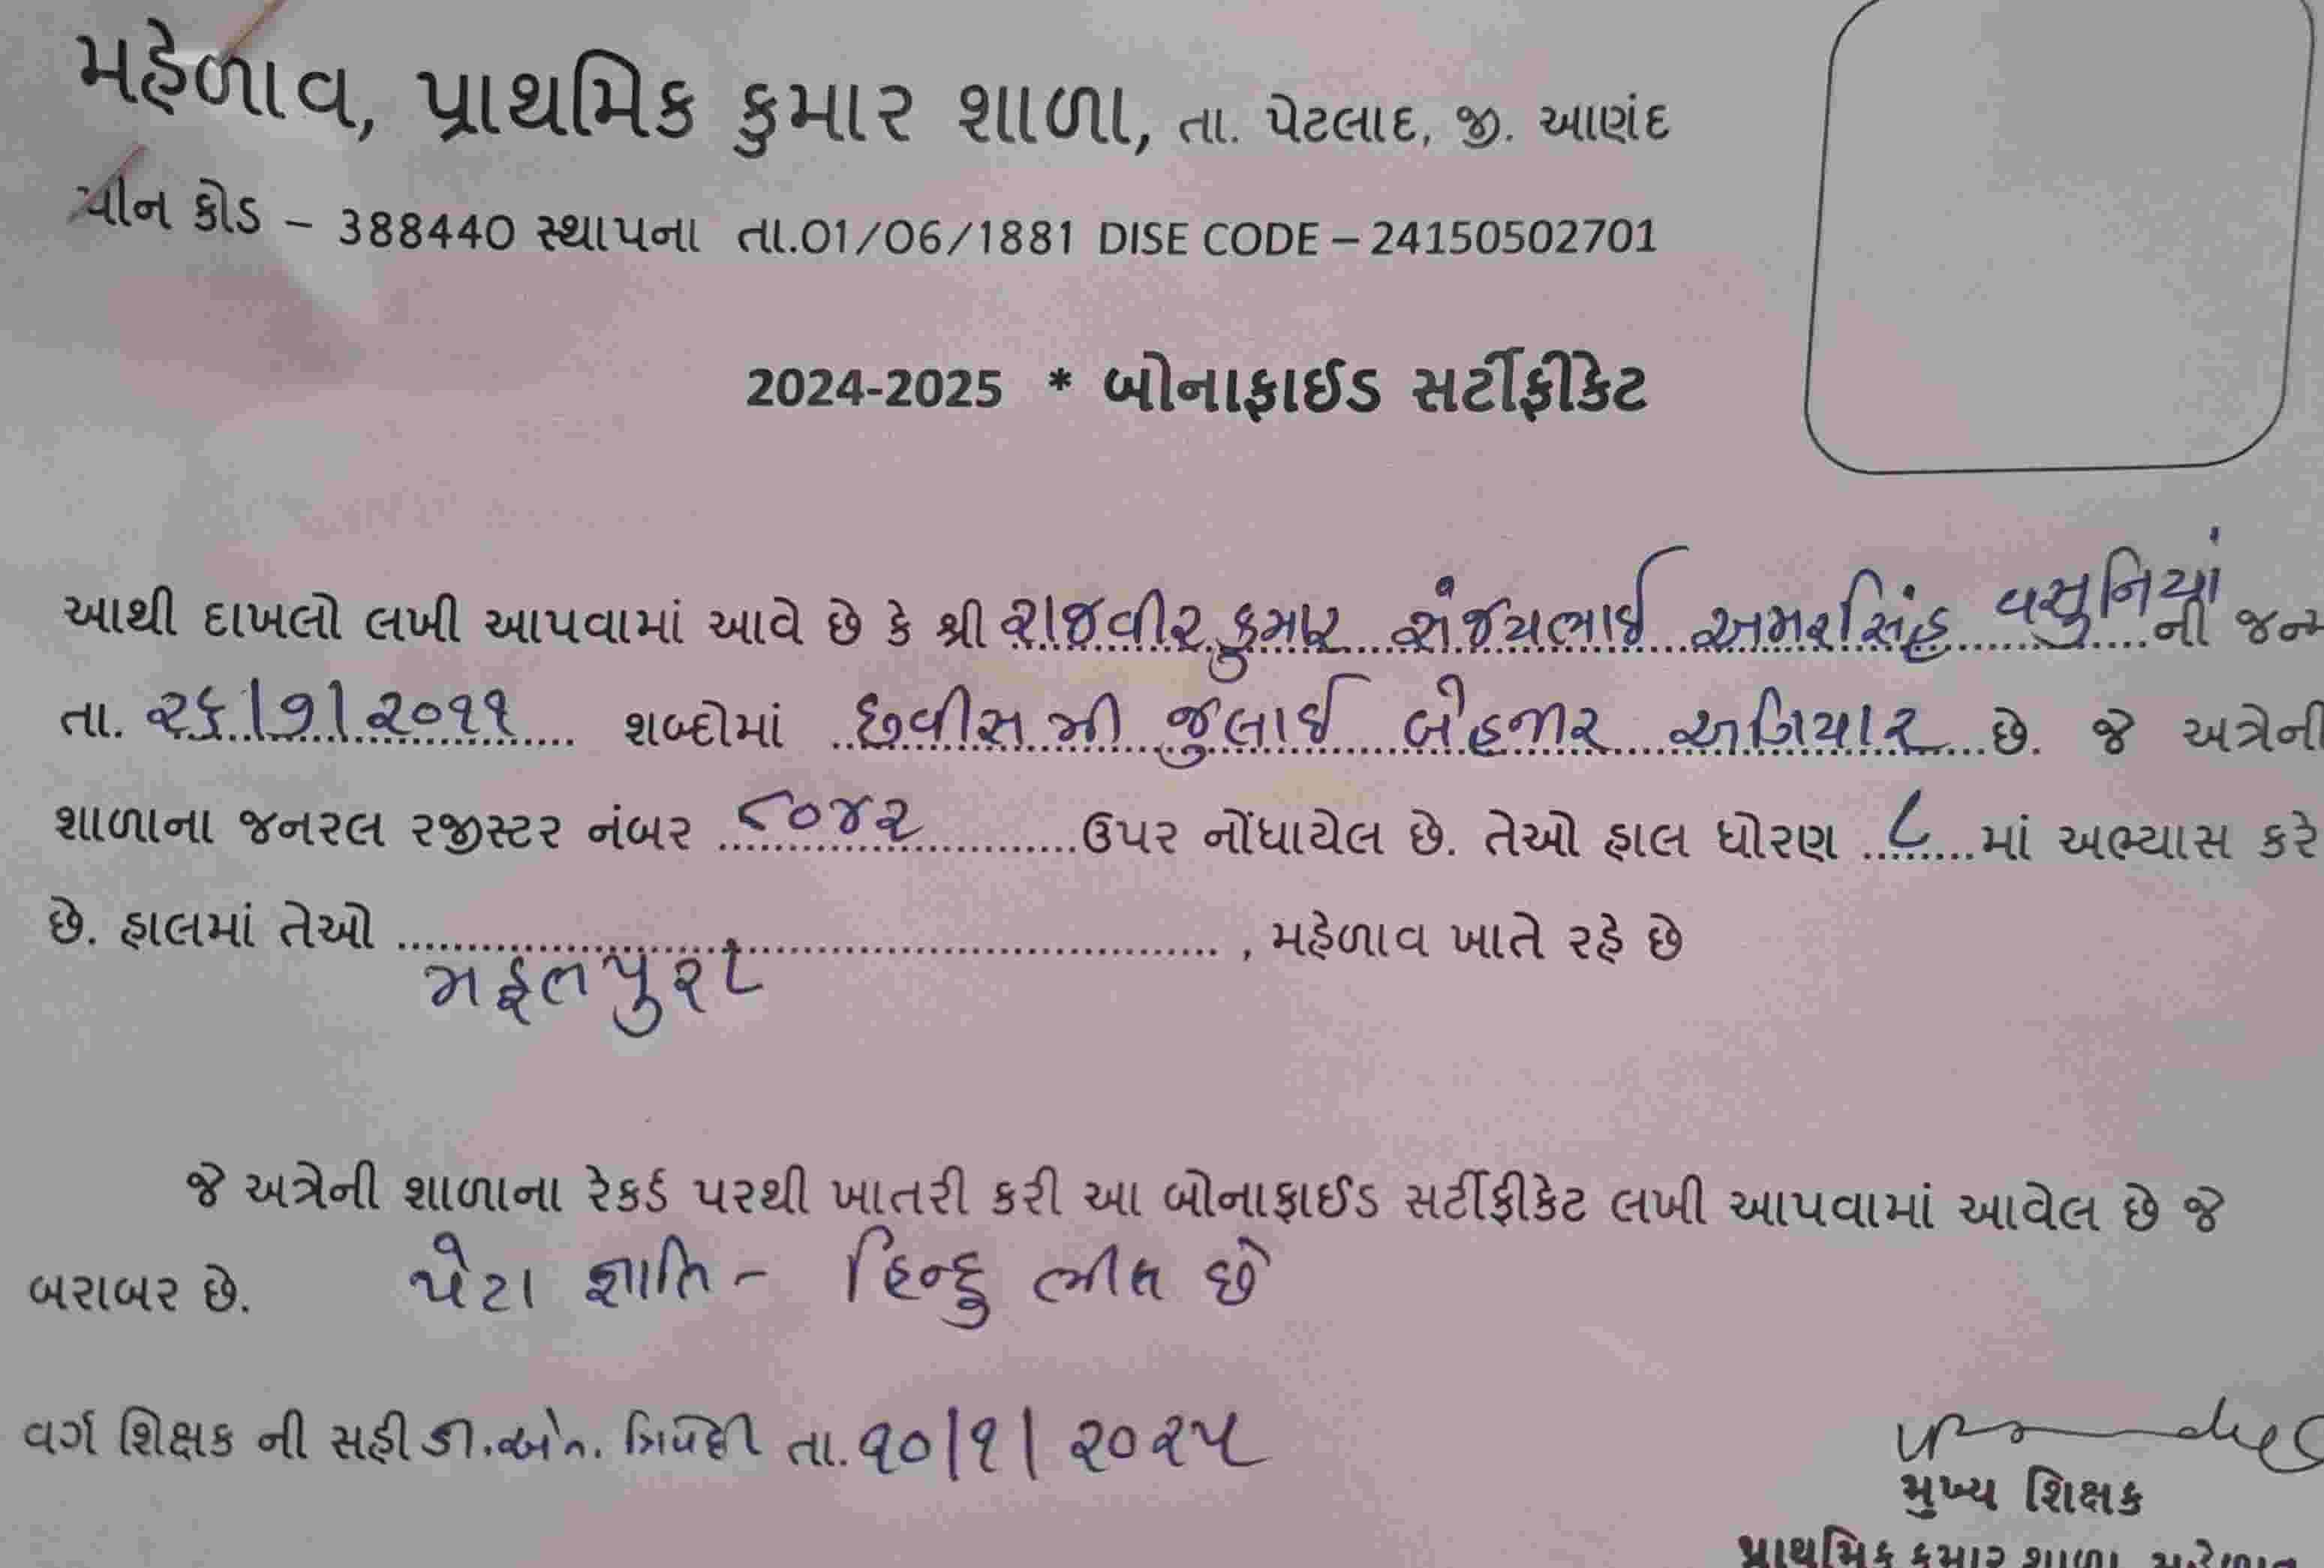 મહેળાવ, પ્રાથમિક કુમાર શાળા, તા. પેટલાદ, જી. આણંદ
પીન કોડ – 388440 સ્થાપના તા.01/06/1881 DISE CODE – 24150502701
2024-2025 * બોનાફાઈડ સર્ટીફીકેટ
આથી દાખલો લખી આપવામાં આવે છે કે શ્રી રાજવીરકુમાર સંજયભાઈ અમરસિંહ વસુનિયાં ની જન્મ
તા. ૨૬/૭/૨૦૧૧ શબ્દોમાં છવીસમી જુલાઈ બેહજાર અગિયાર છે. જે અત્રેની
શાળાના જનરલ રજીસ્ટર નંબર ૮૦૪૨ ઉપર નોંધાયેલ છે. તેઓ હાલ ધોરણ ૮ માં અભ્યાસ કરે
છે. હાલમાં તેઓ મફલપુરા , મહેળાવ ખાતે રહે છે
જે અત્રેની શાળાના રેકર્ડ પરથી ખાતરી કરી આ બોનાફાઈડ સર્ટીફીકેટ લખી આપવામાં આવેલ છે જે
બરાબર છે. પેટા જ્ઞાતિ - હિન્દુ ભીલ છે
વર્ગ શિક્ષક ની સહી ડી.એન. ત્રિવેદી તા. ૧૦/૧/૨૦૨૫
મુખ્ય શિક્ષક
પ્રાથમિક કુમાર શાળા, મહેળાવ